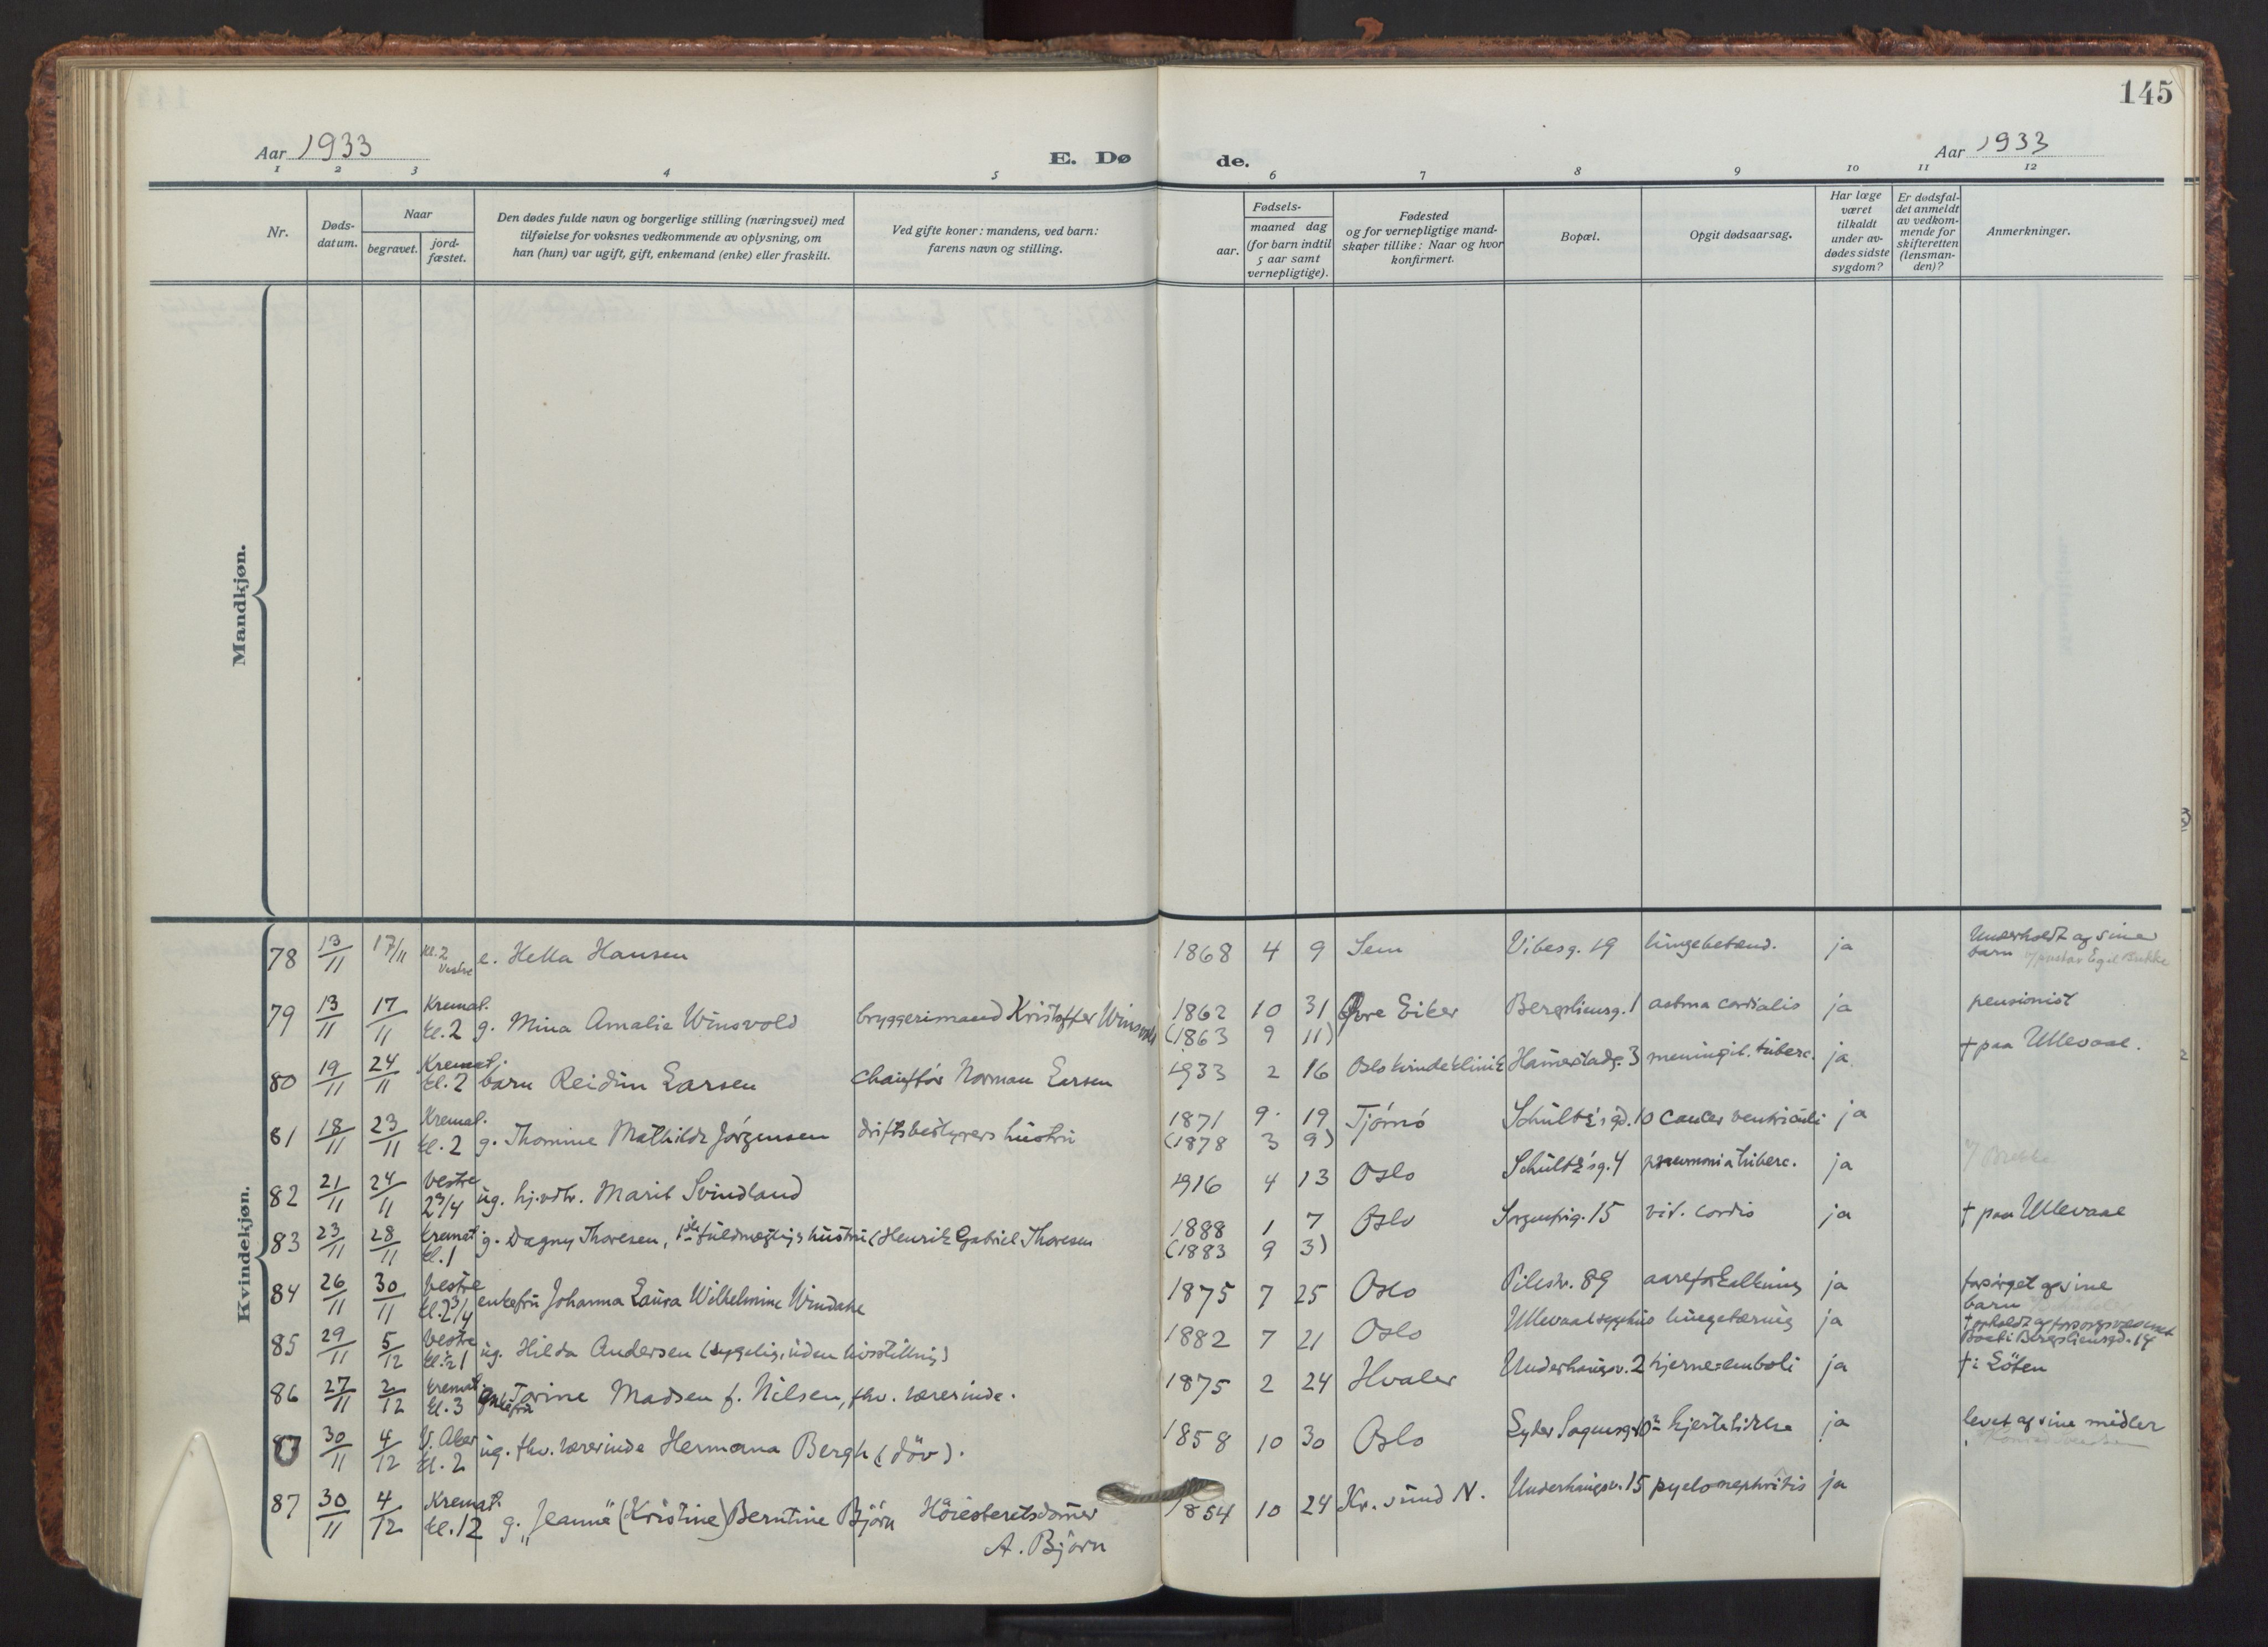 145
Aar 1933
E. Dø de.
Aar 1933
1 2 3 4 5 6 7 8 9 10 11 12
Nr.
Døds-
datum.
Naar
begravet.
jord-
fæstet.
Den dødes fulde navn og borgerlige stilling (næringsvei) med
tilføielse for voksnes vedkommende av oplysning, om
han (hun) var ugift, gift, enkemand (enke) eller fraskilt.
Ved gifte koner: mandens, ved barn:
farens navn og stilling.
Fødsels-
aar.
maaned dag
(for barn indtil
5 aar samt
vernepligtige).
Fødested
og for vernepligtige mand-
skaper tillike: Naar og hvor
konfirmert.
Bopæl.
Opgit dødsaarsag.
Har læge
været
tilkaldt
under av-
dødes sidste
sygdom?
Er dødsfal-
det anmeldt
av vedkom-
mende for
skifteretten
(lensman-
den)?
Anmerkninger.
Mandkjøn.
Kvindekjøn.
78 13/11 17/11 kl. 2 Vestre e. Hella Hansen 1868 4 9 Sem Vibesg. 19 lungebetænd. ja Underholdt af sine
barn
79 13/11 17/11 Kremat. kl. 2 g. Mina Amalie Winsvold bryggerimand Kristoffer Winsvold 1862 10 31 Øvre Eiker Bergsliensg. 1 astma cordialis ja pensionist
(1863 9 11)
80 19/11 24/11 Kremat. kl. 2 barn Reidun Larsen chauffør Norman Larsen 1933 2 16 Oslo kvindeklinik 3 meningit. tuberc. ja. † paa Ullevaal.
81 18/11 23/11 Kremat. kl. 2 g. Thomine Mathilde Jørgensen driftsbestyrers hustru 1871 9 19 Tjømø Schultz's gd. 10 cancer ventriculi ja
(1878 3 9)
82 21/11 24/11 Vestre 2 3/4 ug. hj.vdr. Marit Svindland 1916 4 13 Oslo Schultz's g. 4 pneumonia tuberc. ja
83 23/11 28/11 Kremat kl. 1 g. Dagny Thoresen, 1ste fuldmægtigs hustru (Henrik Gabriel Thoresen 1888 1 7 Oslo Sorgenfrig. 15 vit. cordis ja † paa Ullevaal
(1883 9 3)
84 26/11 30/11 Vestre kl. 2 3/4 enkefru Johanna Laura Wilhelmine 1875 7 25 Oslo Pilestr. 89 aareforkalkning ja forsørget af sine
barn
85 29/11 5/12 Vestre kl. 1 ug. Hilda Andersen (sygelig, uden livsstilling) 1882 7 21 Oslo Ullevaal sygehus lungetæring ja
Bergsliensgd. 14
86 27/11 2/12 Kremat. kl. 3 enkefru Torine Madsen f. Nilsen, fhv. lærerinde. 1875 2 24 Hvaler Underhaugsv. 2 hjerne=emboli ja † i Løten
30/11 4/12 V. Aker kl. 2 ug. fhv. lærerinde Hermana Bergh (døv). 1858 10 30 Oslo Lyder Sagensg. 10 hjertelidelse ja levet af sine midler
87 30/11 4/12 Kremat. kl. 12 g. „Jeanna" (Kristine) Berntine Bjørn Høiesteretsdommer 1854 10 24 Kr. sund N. Underhaugsv. 15 pyelonephritis ja
A. Bjørn